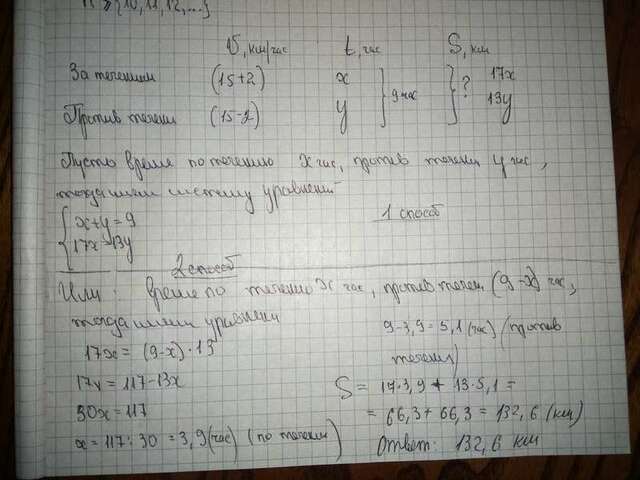 {10,11,12,...}
V, км/час t, час S, км
За течением (15+2) x 17x
} 9 час } ?
Против течени (15-2) y 13y
Пусть время по течению x час, против течени y час,
тогда имеем систему уравнений
{ x+y=9
17x=13y
1 способ
2 способ
Или: время по течению x час, против течен (9-x) час,
тогда имеем уравнени
9-3,9=5,1 (час) (против
течения)
17x = (9-x)·13
17x = 117-13x
30x=117
x = 117:30 = 3,9 (час) (по течени)
S = 17·3,9 + 13·5,1 =
= 66,3 + 66,3 = 132,6 (км)
Ответ: 132,6 км